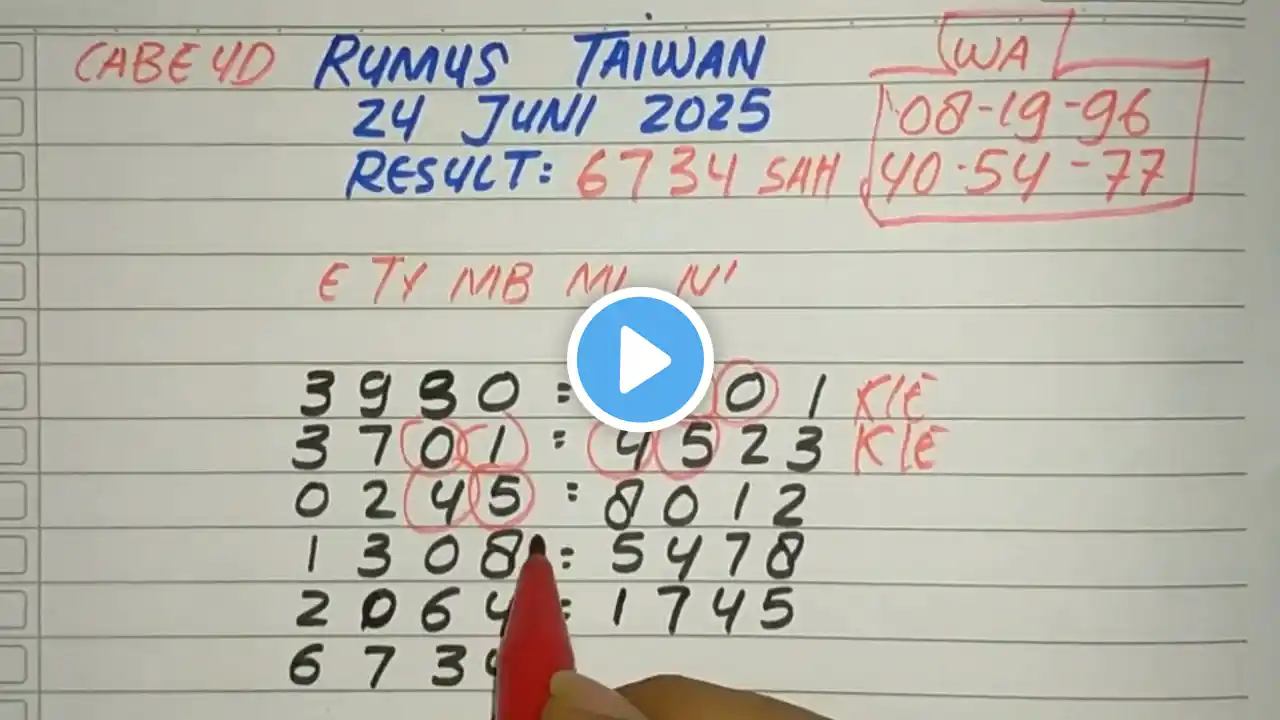 CABE 4D RUMUS TAIWAN
24 JUNI 2025
RESULT: 6734 SAH
WA
08-19-96
40-54-77
E TY MB
3 9 8 0 = 0 1 K/E
3 7 0 1 = 4 5 2 3 K/E
0 2 4 5 = 8 0 1 2
1 3 0 8 = 5 4 7 8
2 0 6 4 = 1 7 4 5
6 7 3